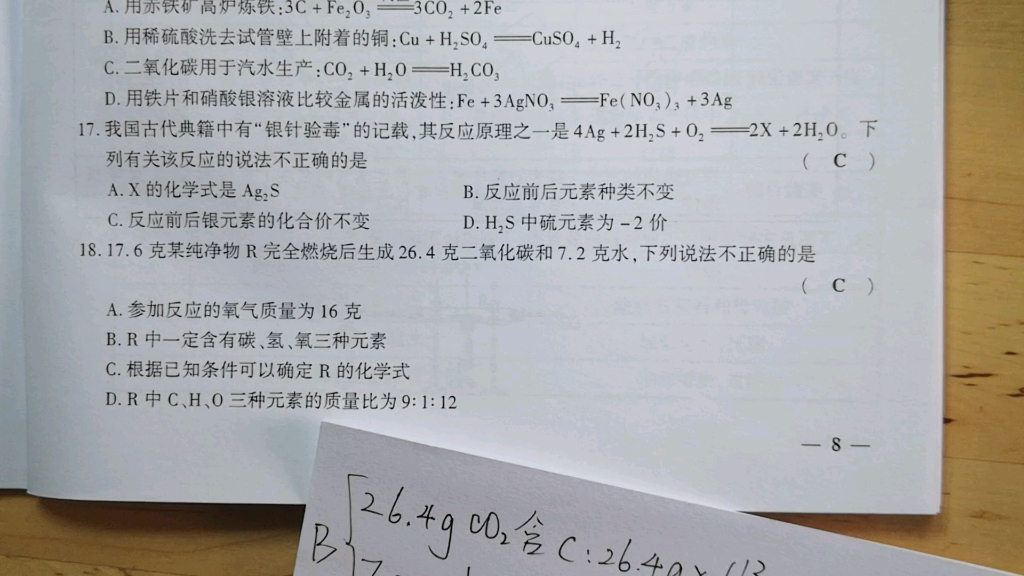 A.用赤铁矿高炉炼铁:3C+Fe₂O₃══3CO₂+2Fe
B.用稀硫酸洗去试管壁上附着的铜:Cu+H₂SO₄══CuSO₄+H₂
C.二氧化碳用于汽水生产:CO₂+H₂O══H₂CO₃
D.用铁片和硝酸银溶液比较金属的活泼性:Fe+3AgNO₃══Fe(NO₃)₃+3Ag
17.我国古代典籍中有“银针验毒”的记载,其反应原理之一是4Ag+2H₂S+O₂══2X+2H₂O。下
列有关该反应的说法不正确的是 ( C )
A.X的化学式是Ag₂S B.反应前后元素种类不变
C.反应前后银元素的化合价不变 D.H₂S中硫元素为-2价
18.17.6克某纯净物R完全燃烧后生成26.4克二氧化碳和7.2克水,下列说法不正确的是
( C )
A.参加反应的氧气质量为16克
B.R中一定含有碳、氢、氧三种元素
C.根据已知条件可以确定R的化学式
D.R中C、H、O三种元素的质量比为9:1:12
— 8 —
B 26.4g CO₂含C:26.4g×